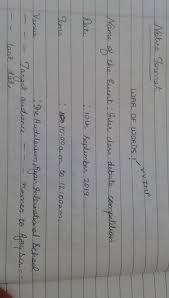 Notice Format
WAR OF WORDS!
Name of the Event : Inter class debate competition
Date : 10th September 2019
Time : 10:00 a.m to 12:00 a.m.
Venue : The Auditorium, International School
--- Target audience --- names to
--- last date